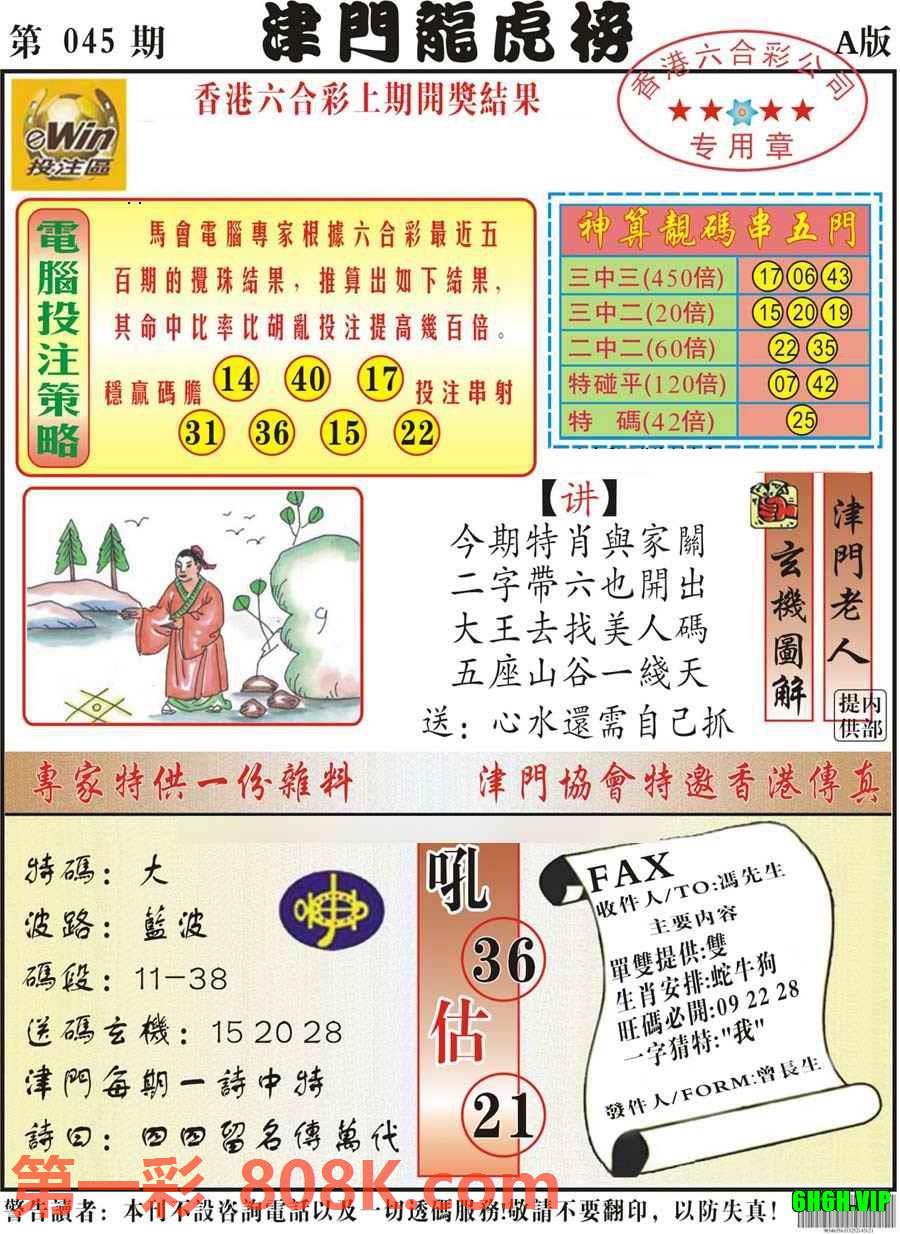 第 045 期
津門龍虎榜
A版
eWin
投注區
香港六合彩上期開獎結果
香港六合彩公司
★★★★
专用章
電腦投注策略
馬會電腦專家根據六合彩最近五
百期的攪珠結果，推算出如下結果，
其命中比率比胡亂投注提高幾百倍。
穩贏碼膽 14 40 17 投注串射
31 36 15 22
神算靚碼串五門
三中三(450倍) 17 06 43
三中二(20倍) 15 20 19
二中二(60倍) 22 35
特碰平(120倍) 07 42
特 碼(42倍) 25
【讲】
今期特肖與家關
二字帶六也開出
大王去找美人碼
五座山谷一綫天
送：心水還需自己抓
津門老人
玄機圖解
內部提供
專家特供一份雜料
津門協會特邀香港傳真
特碼：大
波路：藍波
碼段：11-38
送碼玄機：15 20 28
津門每期一詩中特
詩曰：四四留名傳萬代
吼
36
估
21
FAX
收件人/TO:馮先生
主要内容
單雙提供:雙
生肖安排:蛇牛狗
旺碼必開:09 22 28
一字猜特:"我"
發件人/FORM:曾長生
第一彩 808K.com
6H6H.VIP
警告讀者：本刊不設咨詢電話以及一切透碼服務!敬請不要翻印，以防失真!